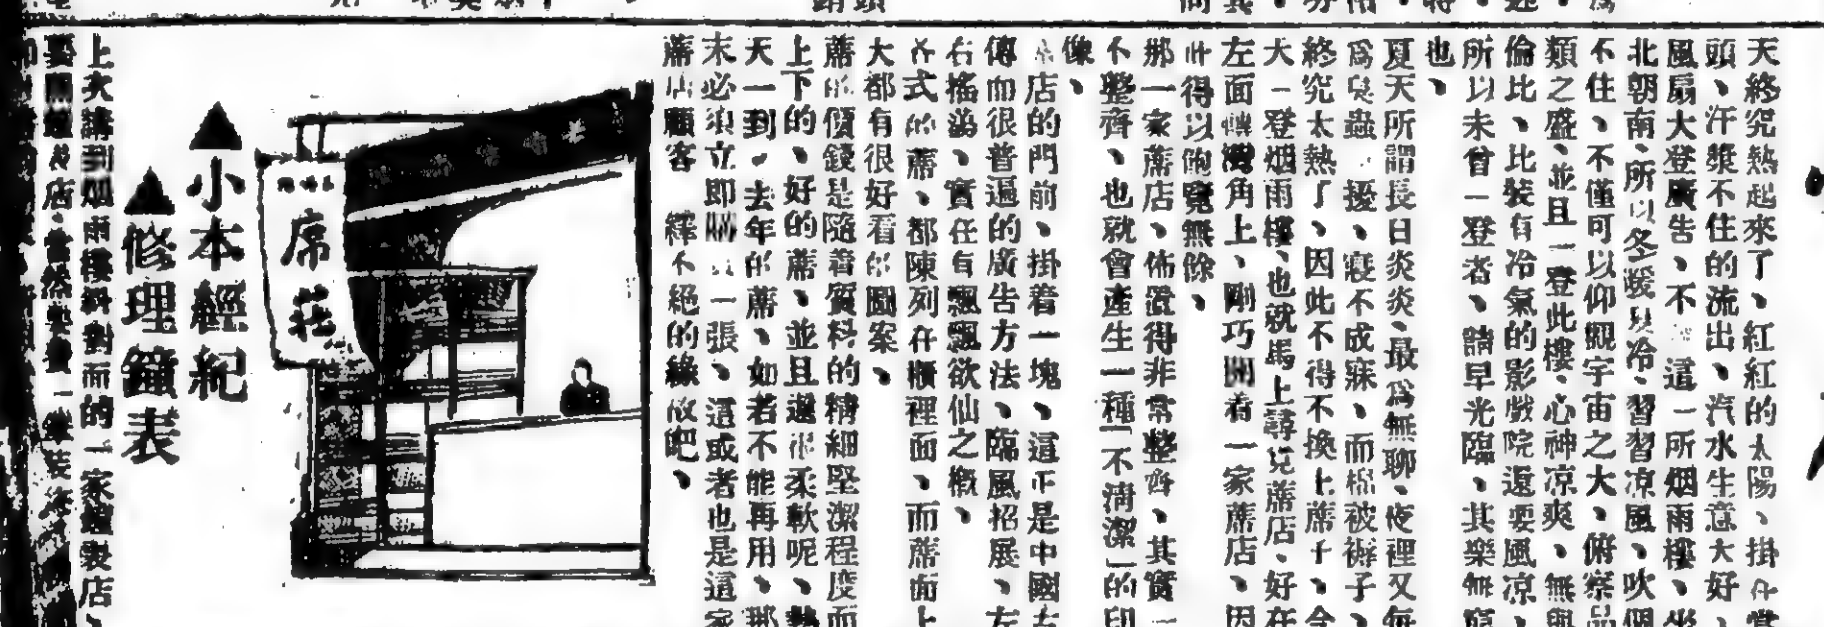 天終究熱起來了、紅紅的太陽、掛在當
頭、汗漿不住的流出、汽水生意大好、
風扇大登廣告、不 這一所烟雨樓、坐
北朝南、所以冬暖夏冷、習習凉風、吹個
不住、不僅可以仰觀宇宙之大、俯察品
類之盛、並且一登此樓、心神凉爽、無與
倫比、比裝有冷氣的影戲院還要風凉、
所以未曾一登者、請早光臨、其樂無窮
也、
夏天所謂長日炎炎、最爲無聊、夜裡又每
爲臭蟲 擾、寢不成寐、而棉被褥子、
終究太熱了、因此不得不換上蓆子、今
天一登烟雨樓、也就馬上尋見蓆店、好在
左面轉灣角上、剛巧開着一家蓆店、因
此得以飽覽無餘、
那一家蓆店、佈置得非常整齊、其實一
不整齊、也就會產生一種「不清潔」的印
像、
店的門前、掛着一塊、這正是中國古
傳而很普遍的廣告方法、臨風招展、左
右搖蕩、實在有飄飄欲仙之概、
各式的蓆、都陳列在櫥裡面、而蓆面上
大都有很好看的圖案、
蓆的價錢是隨着質料的精細堅潔程度而
上下的、好的蓆、並且還很柔軟呢、熱
天一到、去年的蓆、如若不能再用、那
末必須立即購 一張、這或者也是這家
蓆店顧客 繹不絕的緣故吧、
席莊
▲小本經紀
▲修理鐘表
上次講到烟雨樓斜對面的一家 店、